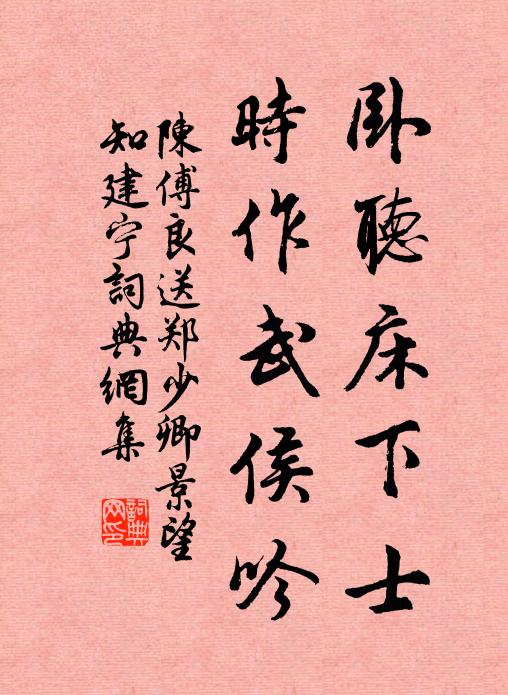 卧聽床下士
時作武侯吟
陳傅良送郑少卿景望
知建宁詞典網集
詞典
网印